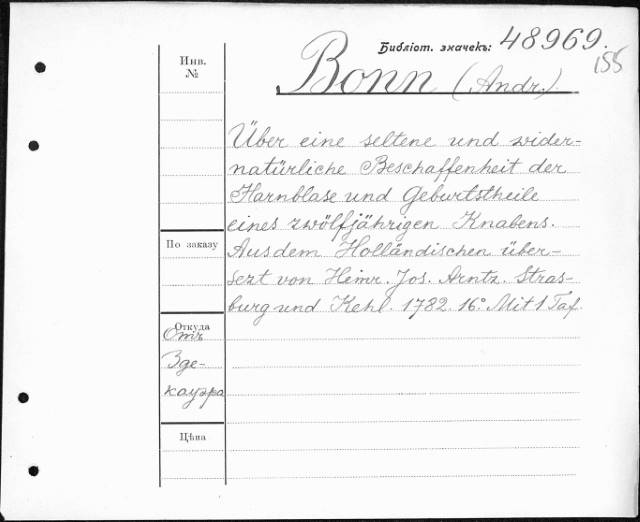 Библіот. значекъ: 48969.
155
Инв. №
Bonn (Andr.)
Über eine seltene und wider-
natürliche Beschaffenheit der
Harnblase und Geburtstheile
eines zwölfjährigen Knabens.
Aus dem Holländischen über-
sezt von Heinr. Jos. Arntz. Stras-
burg und Kehl. 1782. 16.° Mit 1 Taf.
По заказу
Откуда
Отъ
Зде-
кауэра
Цѣна